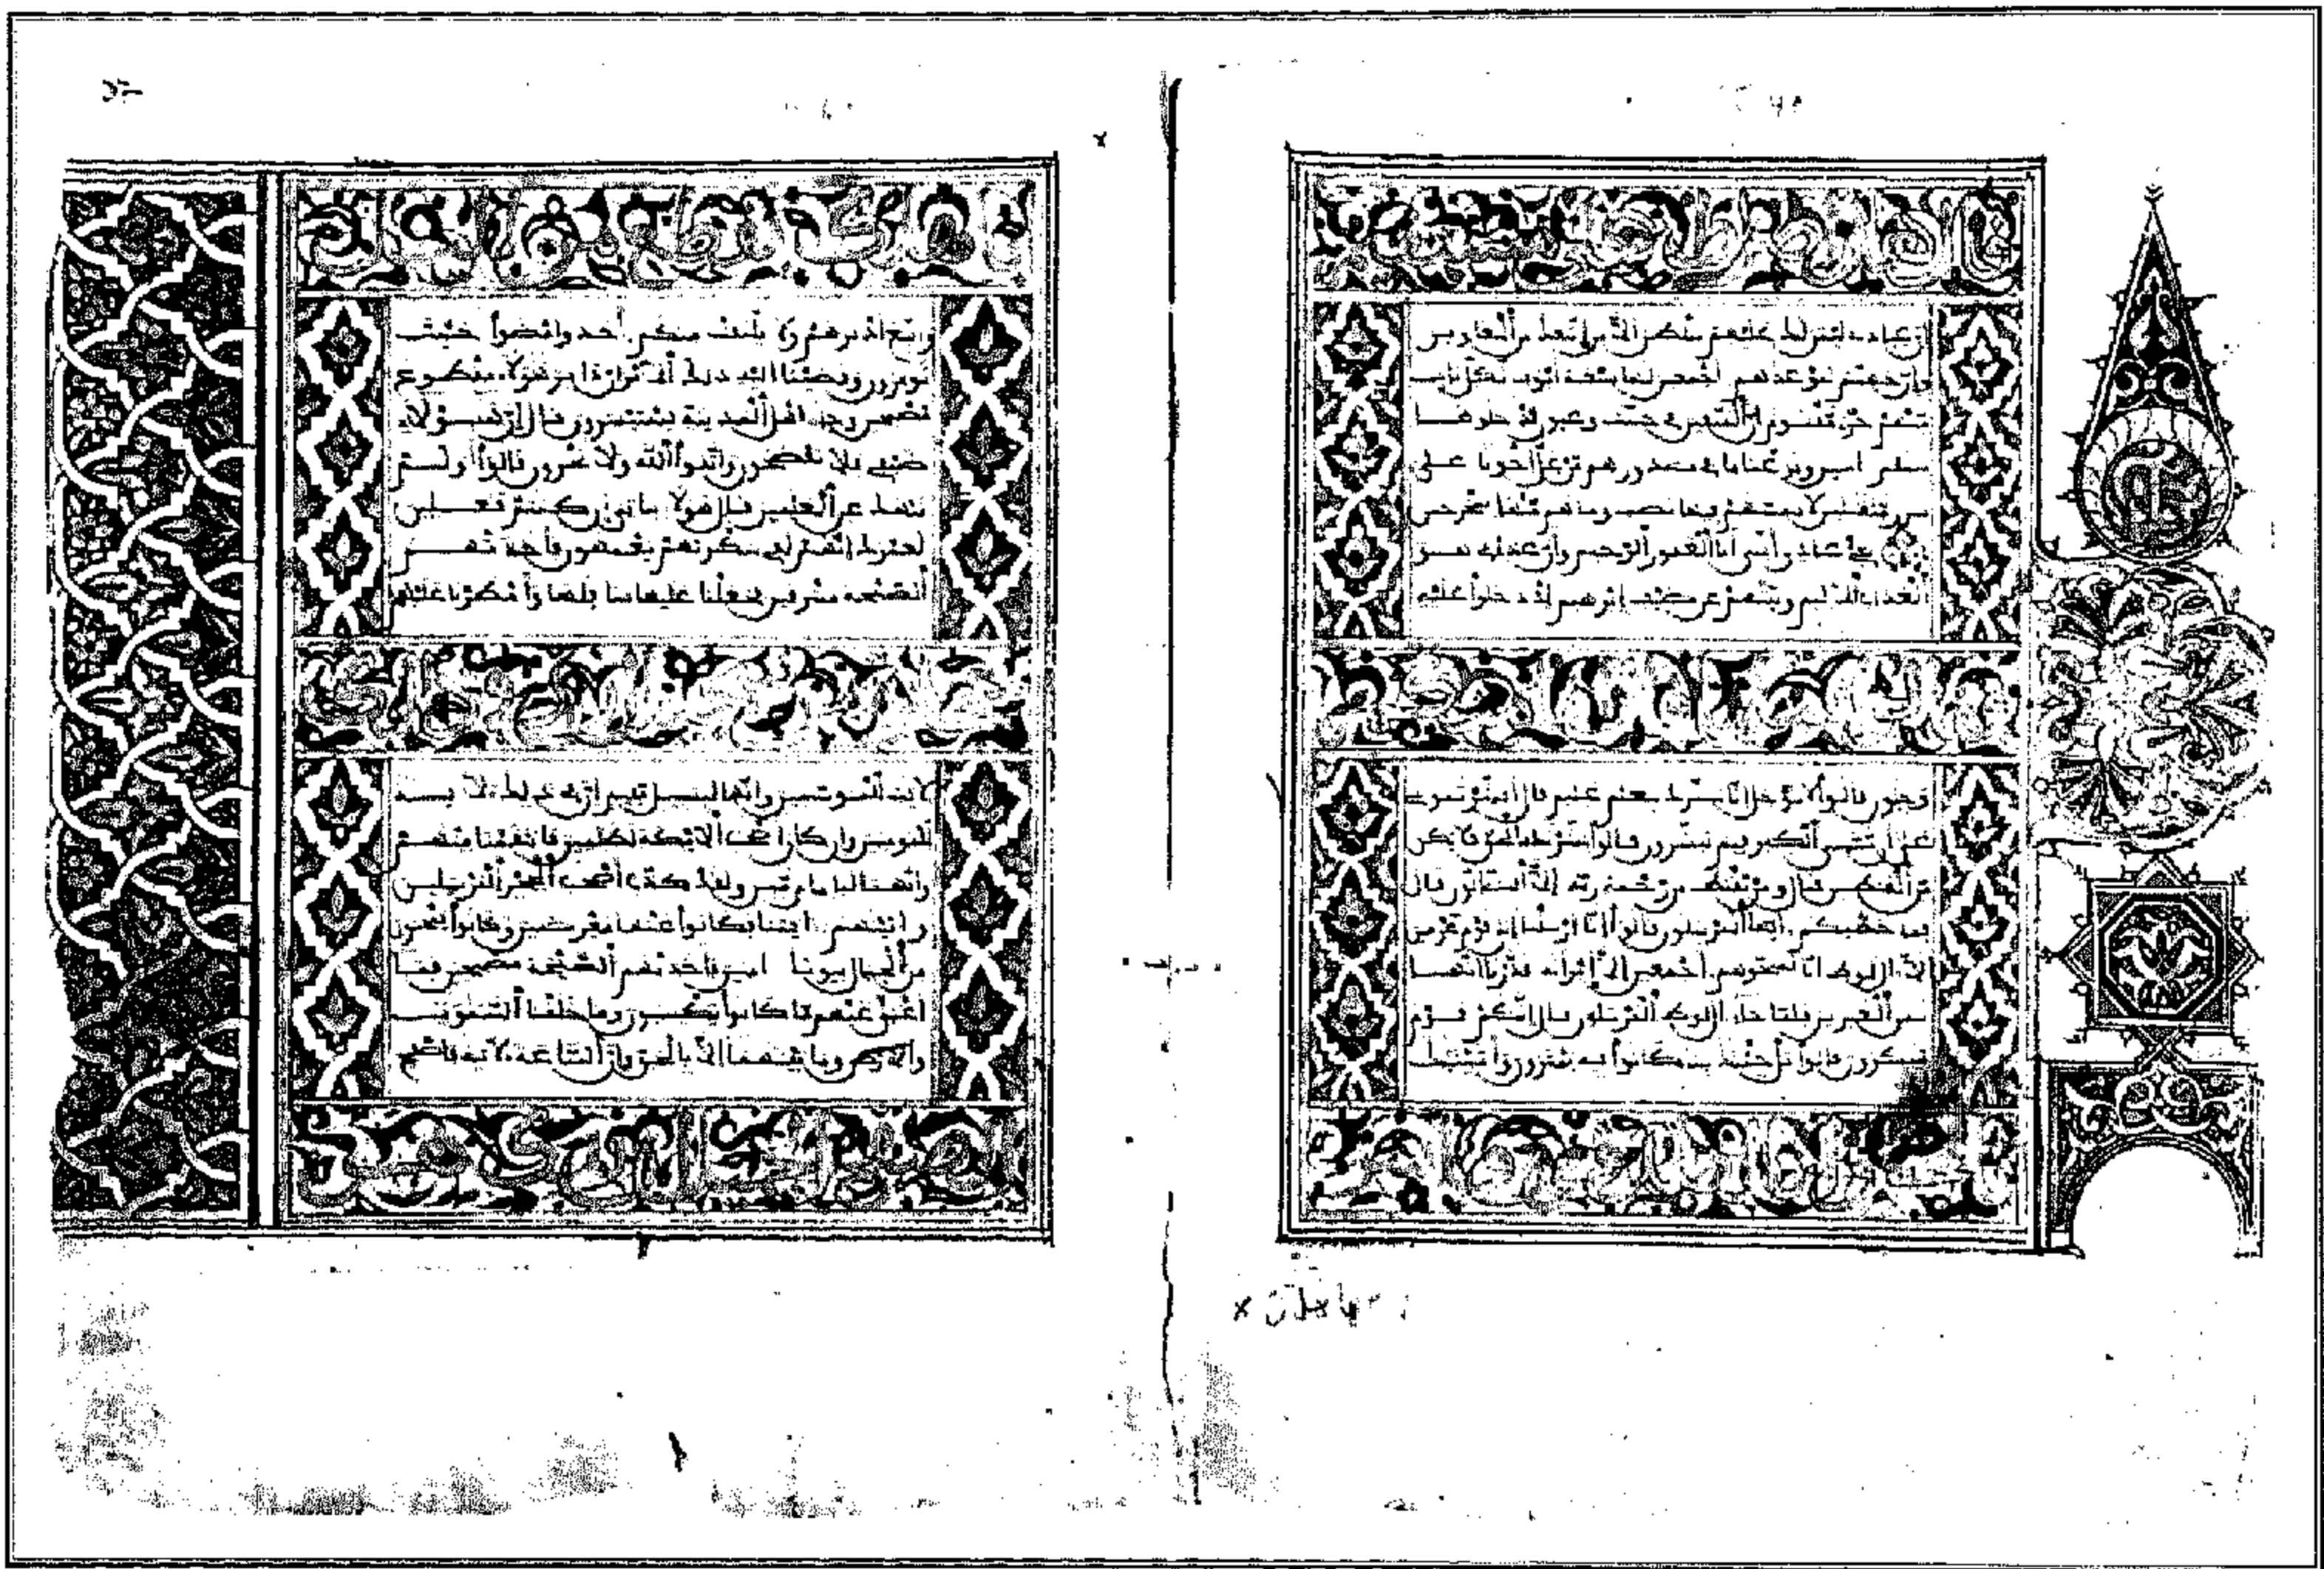 إن عبادي ليس لك عليهم سلطن إلا من اتبعك من الغاوين
وإن جهنم لموعدهم أجمعين لها سبعة أبوب لكل باب
منهم جزء مقسوم إن المتقين في جنت وعيون ادخلوها
بسلم امنين ونزعنا ما في صدورهم من غل إخونا على
سرر متقبلين لا يمسهم فيها نصب وما هم منها بمخرجين
نبئ عبادي أني أنا الغفور الرحيم وأن عذابي هو
العذاب الأليم ونبئهم عن ضيف إبرهيم إذ دخلوا عليه
وجلون قالوا لا توجل إنا نبشرك بغلم عليم قال أبشرتموني
على أن مسني الكبر فبم تبشرون قالوا بشرنك بالحق فلا تكن
من القنطين قال ومن يقنط من رحمة ربه إلا الضالون قال
فما خطبكم أيها المرسلون قالوا إنا أرسلنا إلى قوم مجرمين
إلا ال لوط إنا لمنجوهم أجمعين إلا امرأته قدرنا إنها
لمن الغبرين فلما جاء ال لوط المرسلون قال إنكم قوم
منكرون قالوا بل جئنك بما كانوا فيه يمترون وأتينك
واتبع أدبرهم ولا يلتفت منكم أحد وامضوا حيث
تؤمرون وقضينا إليه ذلك الأمر أن دابر هؤلاء مقطوع
مصبحين وجاء أهل المدينة يستبشرون قال إن هؤلاء
ضيفي فلا تفضحون واتقوا الله ولا تخزون قالوا أولم
ننهك عن العلمين قال هؤلاء بناتي إن كنتم فعلين
لعمرك إنهم لفي سكرتهم يعمهون فأخذتهم
الصيحة مشرقين فجعلنا عليها سافلها وأمطرنا عليهم
لأيت للمتوسمين وإنها لبسبيل مقيم إن في ذلك لأية
للمومنين وإن كان أصحب الأيكة لظلمين فانتقمنا منهم
وإنهما لبإمام مبين ولقد كذب أصحب الحجر المرسلين
واتينهم ايتنا فكانوا عنها معرضين وكانوا ينحتون
من الجبال بيوتا امنين فأخذتهم الصيحة مصبحين فما
أغنى عنهم ما كانوا يكسبون وما خلقنا السموت
والأرض وما بينهما إلا بالحق وإن الساعة لأتية فاصفح